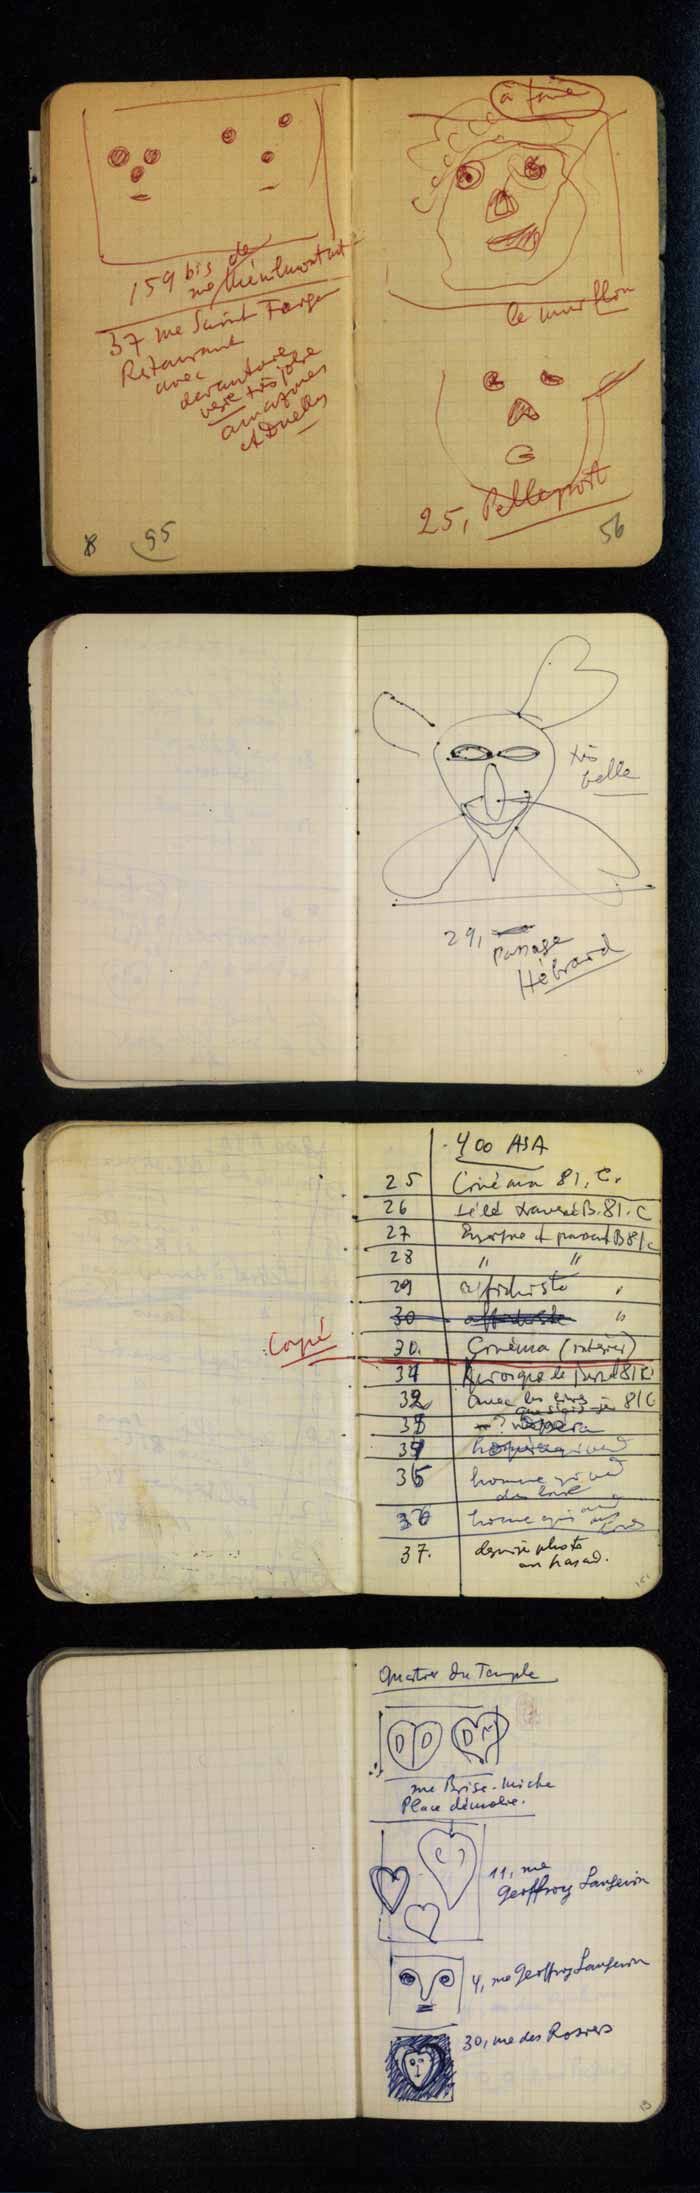 159 bis de
rue Ménilmontant
37 rue Saint Fargeau
Restaurant
avec
devanture
verte très jolie
amazones
et Duelles
8 55
à faire
25, Pelleport
56
très
belle
29,
Passage
Hébrard
400 ASA
25 Cinéma 81. C.
26 B. 81. C
27 B 81/C
28 " "
29 affichiste "
30 affichiste "
Coupé
30. Cinéma (intérieur)
31 81 C
32 avec les 81/C
33
34
35 homme qui
36 homme qui
37. dernière photo
au hasard.
Quartier du Temple
rue Brise-Miche
Place démolie.
11, rue
Geoffroy Langevin
4, rue Geoffroy Langevin
30, rue des Rosiers